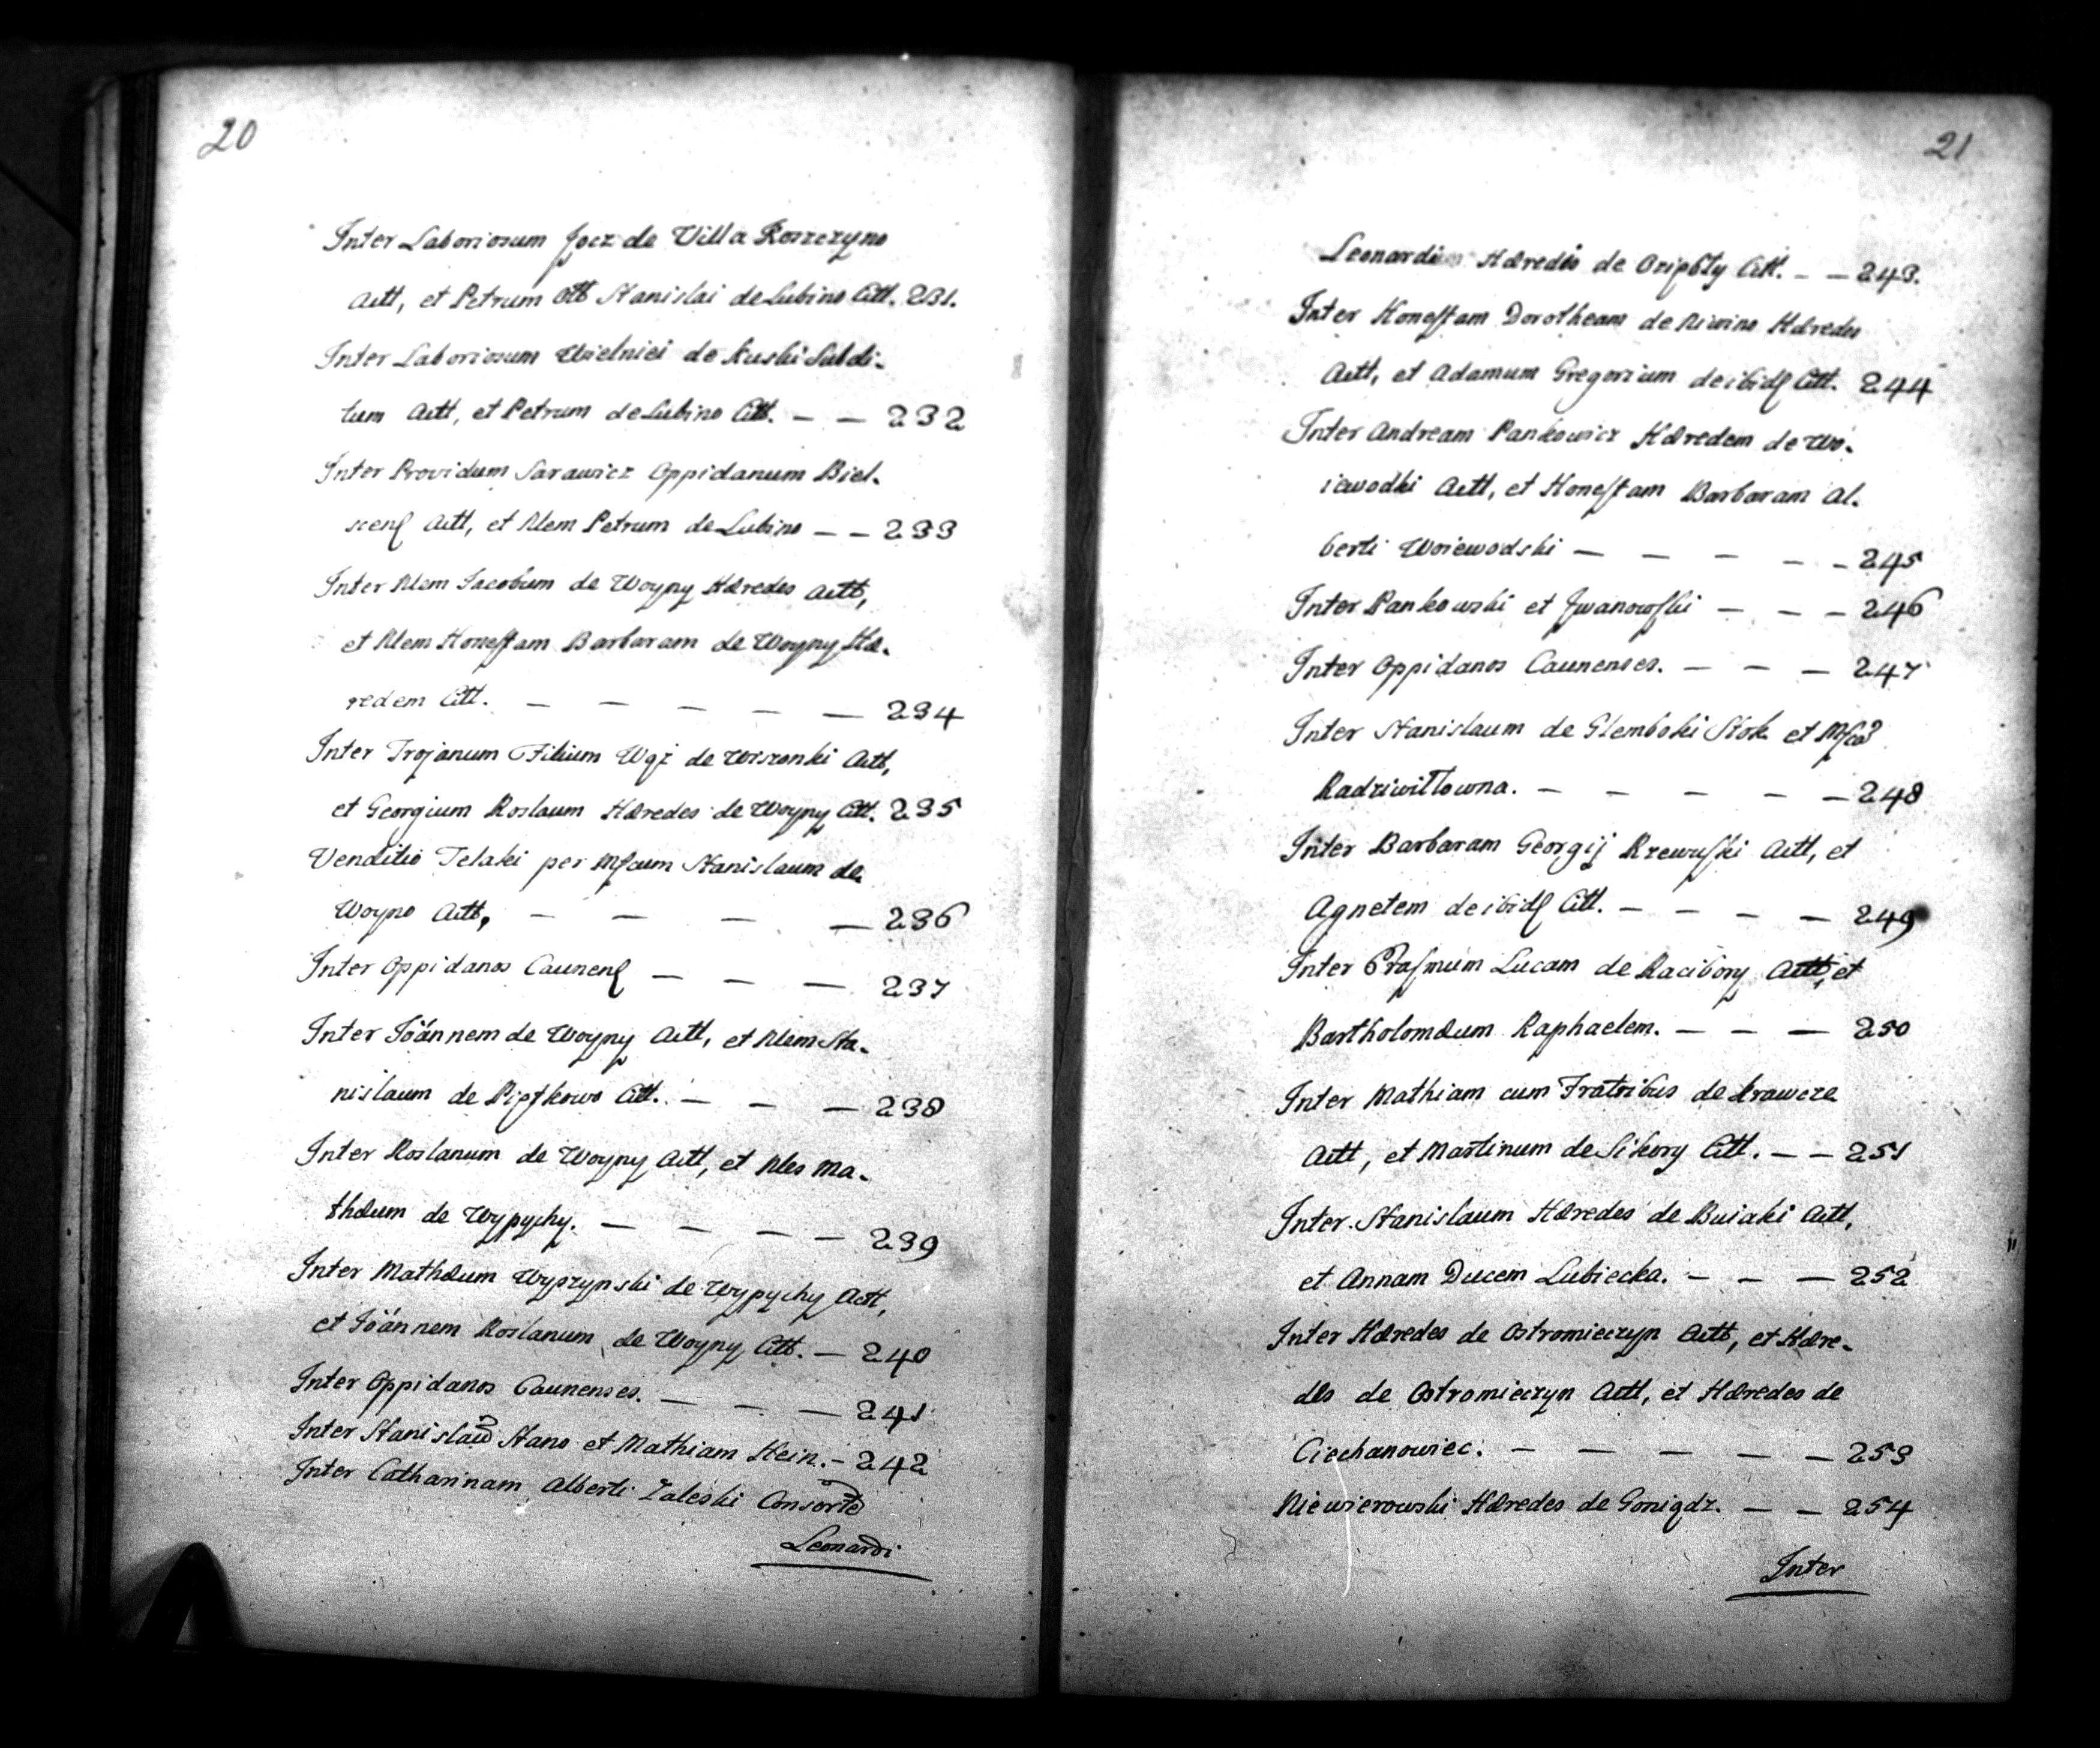 20
Inter Laboriosum Jocz de Villa Roszczyno
Actt, et Petrum Ott Stanislai de Lubino Citt. 231.
Inter Laboriosum Wielnici de Kuski Subdi-
tum Actt, et Petrum de Lubino Citt. — — 232
Inter Providum Sarawicz Oppidanum Biel-
scens Actt, et Nlem Petrum de Lubino — — 233
Inter Nlem Jacobum de Woyny Hæredes Actt,
et Nlem Honestam Barbaram de Woyny Hæ-
redem Citt. — — — — — 234
Inter Trojanum Filium Wgi de Wiszonki Actt,
et Georgium Roslaum Hæredes de Woyny Citt. 235
Venditio Telaki per Mfcum Stanislaum de
Woyno Actt, — — — — 236
Inter Oppidanos Caunens — — — 237
Inter Joánnem de Woyny Actt, et Nlem Sta-
nislaum de Pietkowo Citt. — — — 238
Inter Roslanum de Woyny Actt, et Nles Ma-
thæum de Wypychy. — — — — 239
Inter Mathæum Wypzynski de Wypychy Actt,
et Joánnem Roslanum de Woyny Citt. — 240
Inter Oppidanos Caunenses. — — — 241
Inter Stanislau Stano et Mathiam Stein. — 242
Inter Catharinam Alberti Zaleski Consorte
Leonardi
21
Leonardi Hæredis de Osipbly Citt. — — 243.
Inter Honestam Dorotheam de Niwino Hæredes
Actt, et Adamum Gregorium de ibid Citt. 244
Inter Andream Pankowicz Hæredem de Wo-
iewodki Actt, et Honestam Barbaram Al-
berti Woiewodski — — — — — 245
Inter Pankowski et Jwanowski — — — 246
Inter Oppidanos Caunenses. — — — 247
Inter Stanislaum de Glemboki Stok et Mfca
Radziwiłłowna. — — — — — 248
Inter Barbaram Georgij Rzewuski Actt, et
Agnetem de ibid Citt. — — — — 249
Inter Erasmum Lucam de Racibory Actt, et
Bartholomæum Raphaelem. — — — 250
Inter Mathiam cum Fratribus de Krawcze
Actt, et Martinum de Sikory Citt. — — 251
Inter Stanislaum Hæredes de Buiaki Actt,
et Annam Ducem Lubiecka. — — — 252
Inter Hæredes de Ostromieczyn Actt, et Hære-
des de Ostromieczyn Actt, et Hæredes de
Ciechanowiec. — — — — — 253
Niewierowski Hæredes de Gonigdz. — — 254
Inter